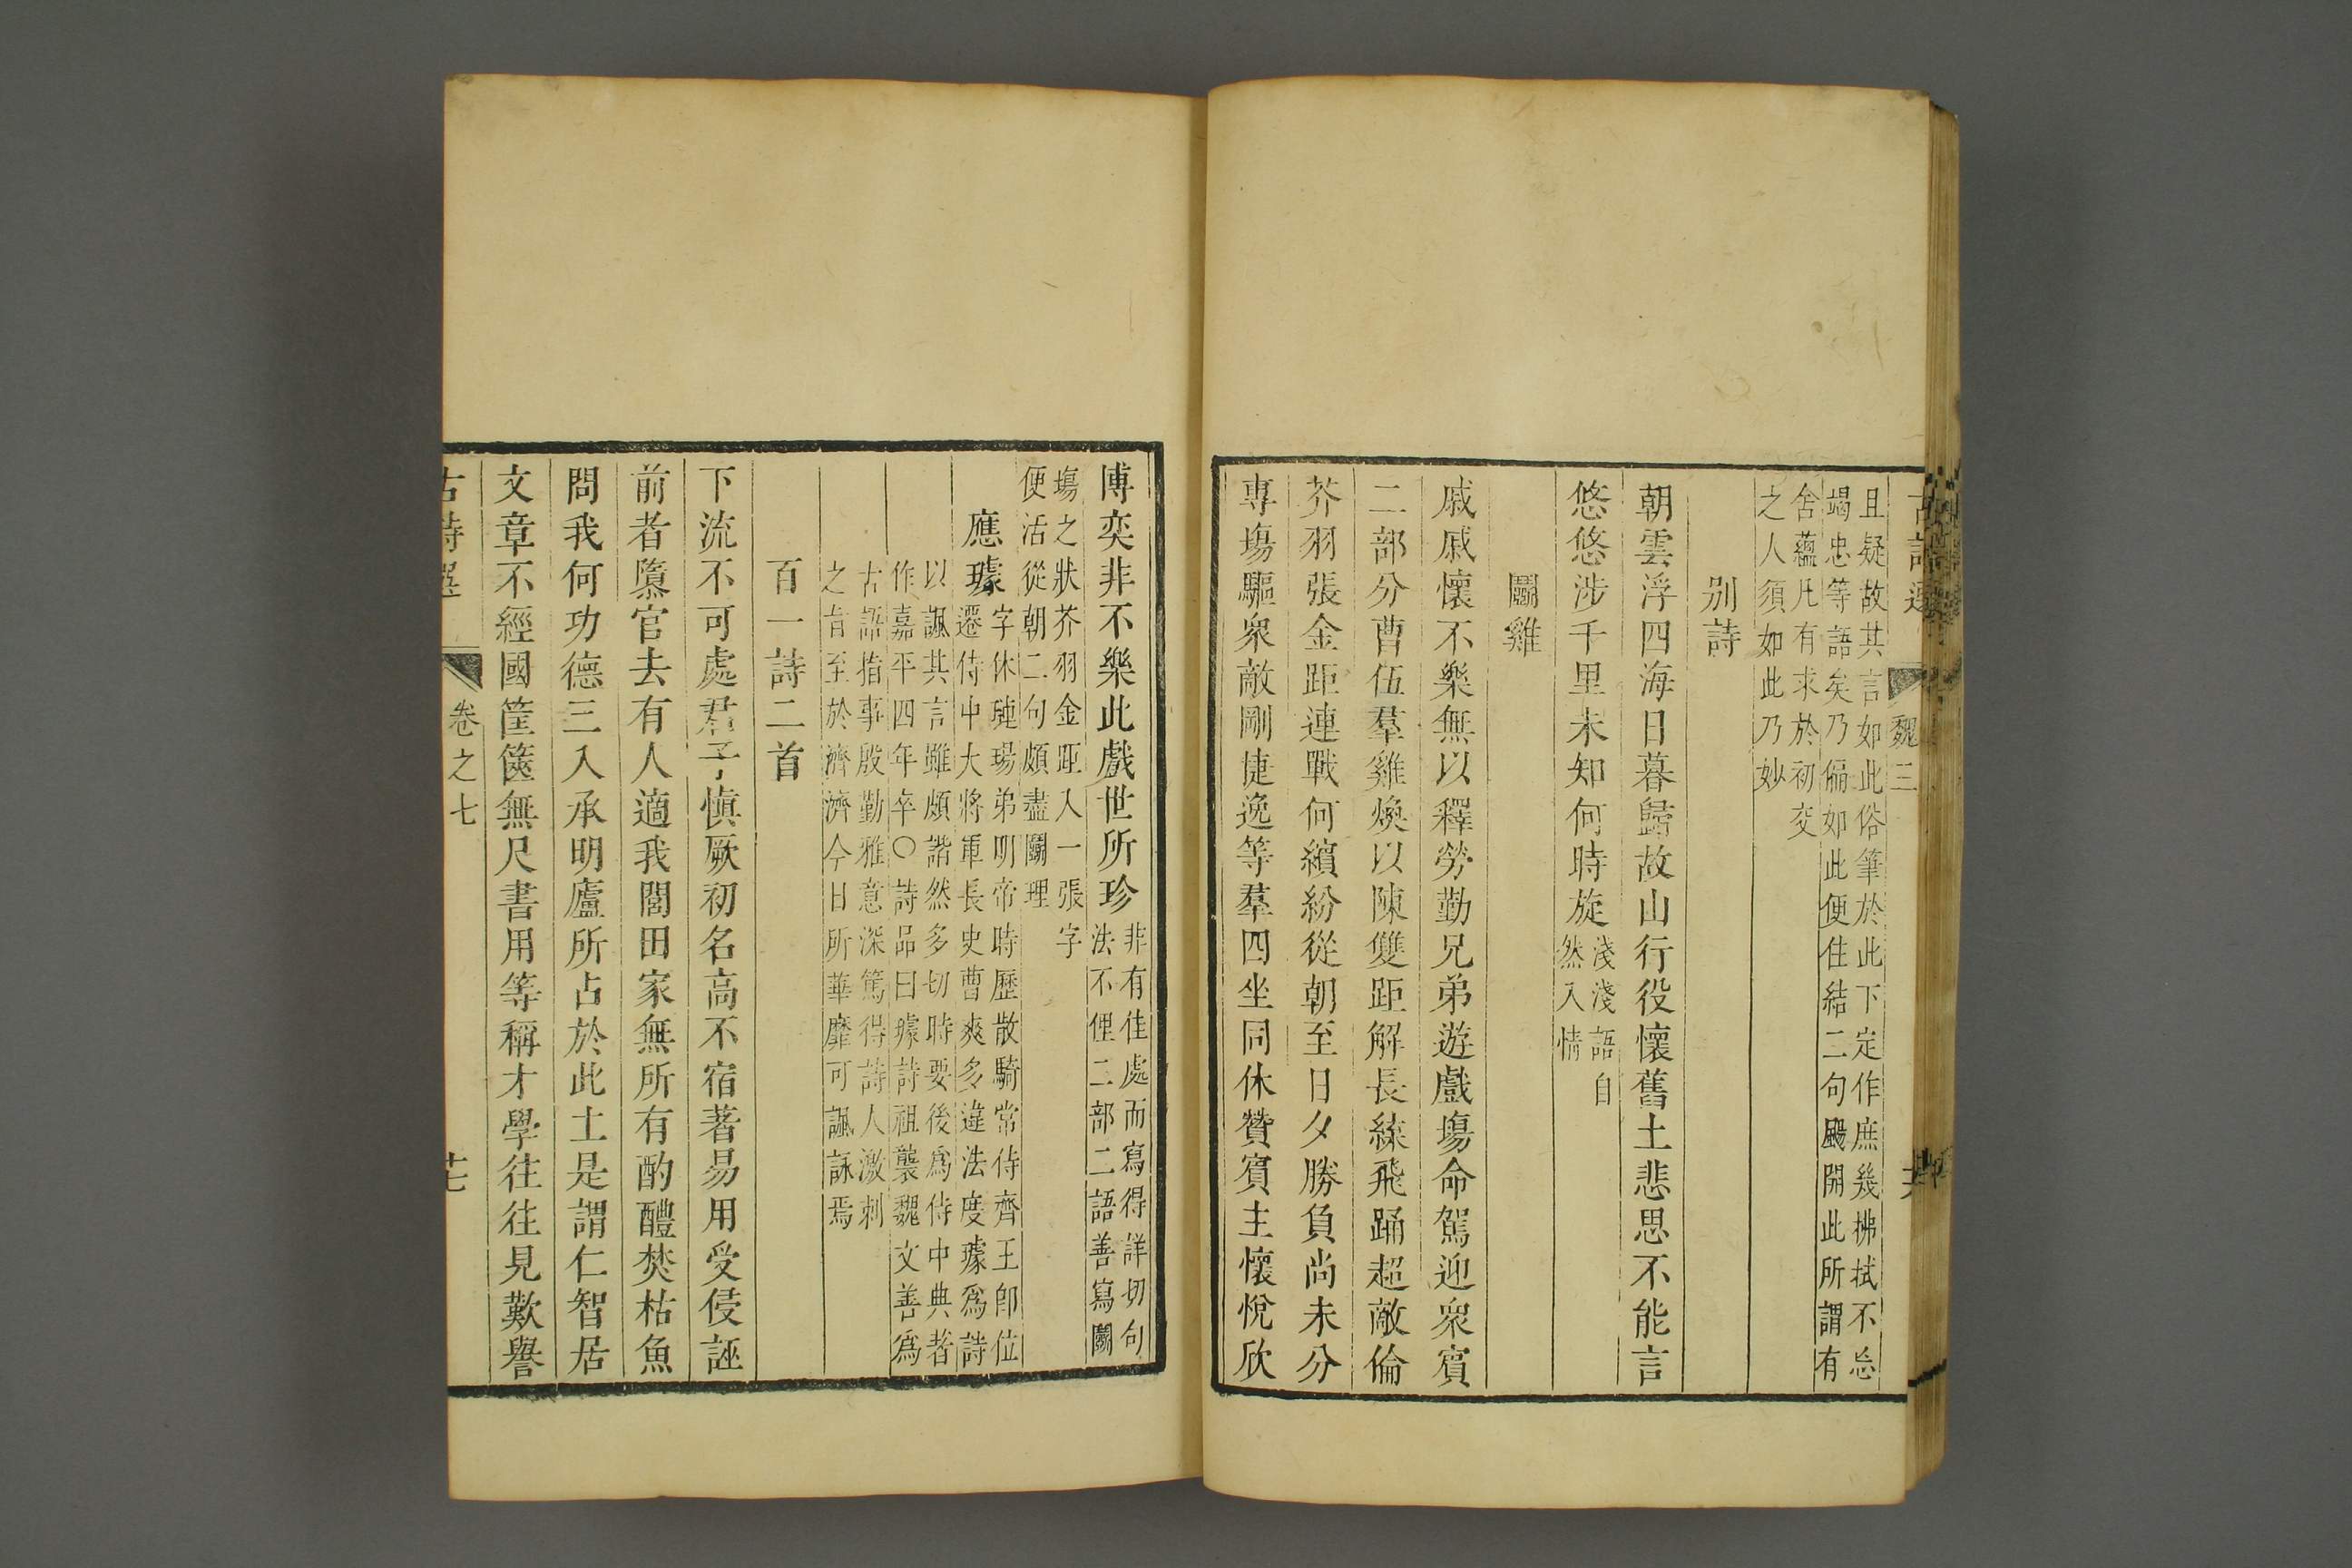 魏三
且疑故其言如此俗筆於此下定作庶幾拂拭不忘
竭忠等語矣乃偏如此便住結二句颺開此所謂有
舍蘊凡有求於初交
之人須如此乃妙
別詩
朝雲浮四海日暮歸故山行役懷舊土悲思不能言
悠悠涉千里未知何時旋淺淺語自
然入情
鬭雞
戚戚懷不樂無以釋勞勤兄弟遊戲塲命駕迎衆賓
二部分曹伍羣雞煥以陳雙距解長緤飛踊超敵倫
芥羽張金距連戰何繽紛從朝至日夕勝負尚未分
專塲驅衆敵剛捷逸等羣四坐同休贊賓主懷悅欣
博奕非不樂此戲世所珍非有佳處而寫得詳切句
法不俚二部二語善寫鬭
塲之狀芥羽金距入一張字
便活從朝二句頗盡鬭理
應璩字休璉瑒弟明帝時歷散騎常侍齊王卽位
遷侍中大將軍長史曹爽多違法度璩爲詩
以諷其言雖頗諧然多切時要後爲侍中典著
作嘉平四年卒○詩品曰璩詩祖襲魏文善爲
古語指事殷勤雅意深篤得詩人激刺
之旨至於濟濟今日所華靡可諷詠焉
百一詩二首
下流不可處君子愼厥初名高不宿著易用受侵誣
前者隳官去有人適我閭田家無所有酌醴焚枯魚
問我何功德三入承明廬所占於此土是謂仁智居
文章不經國筐篋無尺書用等稱才學往往見歎譽
古詩選
卷之七
十七